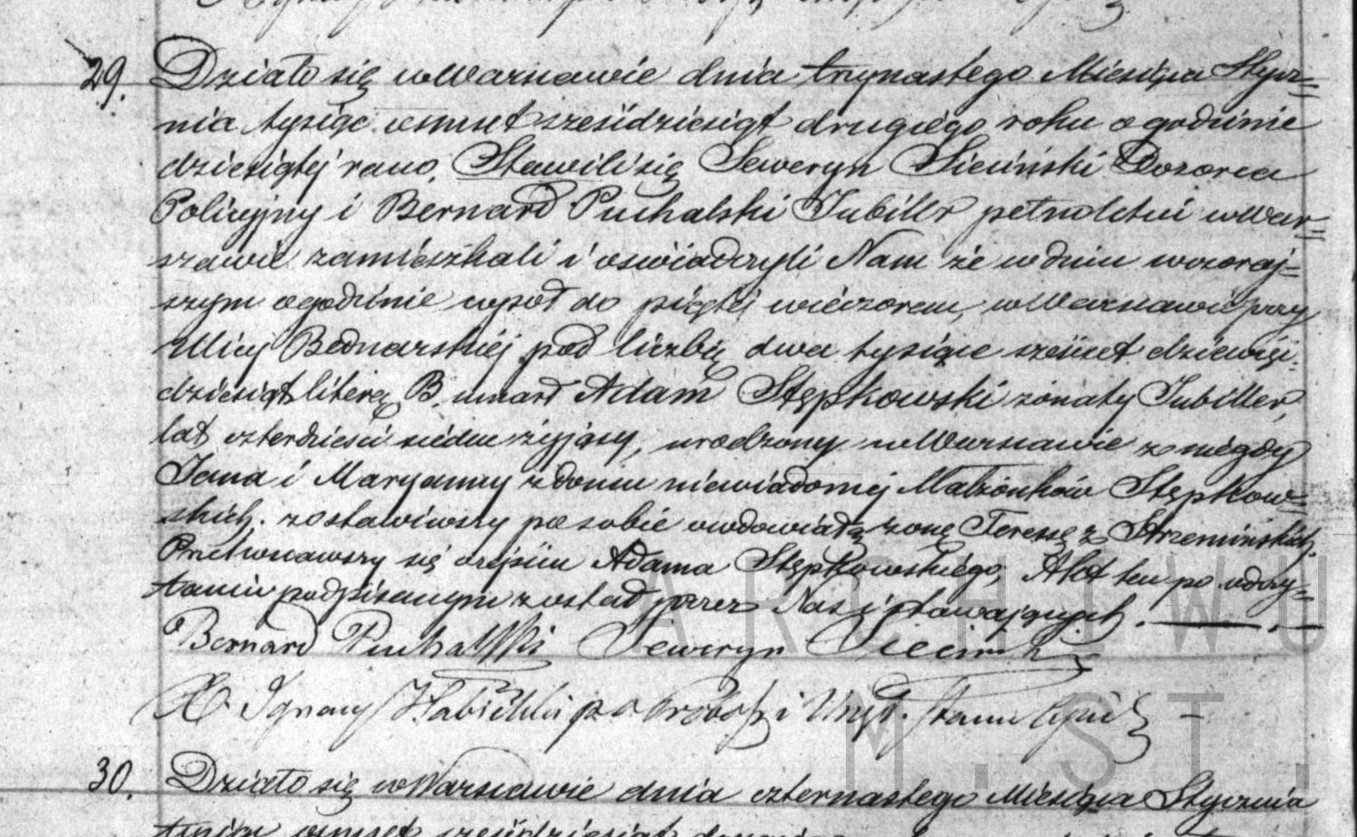 29. Działo się w Warszawie dnia trzynastego Miesiąca Stycz=
nia tysiąc ośmset sześćdziesiąt drugiego roku o godzinie
dziesiątej rano. Stawili się Seweryn Sieciński Dozorca
Policyjny i Bernard Puchalski Jubiller pełnoletni w War=
szawie zamieszkali i oświadczyli Nam że w dniu wczoraj=
szym o godzinie wpół do piątej wieczorem, w Warszawie przy
Ulicy Bednarskiej pod liczbą dwa tysiące sześćset dziewięć
dziesiąt literą B umarł Adam Stępkowski żonaty Jubiller,
lat czterdzieści siedm żyjący, urodzony w Warszawie z niegdy
Jana i Maryanny z domu niewiadomej Małżonków Stępkow=
skich. zostawiwszy po sobie owdowiałą żonę Teressę z Strzemińskich.
Przekonawszy się o zejściu Adama Stępkowskiego, Akt ten po odczy=
taniu podpisanym został przez Nas i stawających.
Bernard Puchalski Seweryn Sieciński
X Ignacy i Urzęd. Stanu Cywil
30. Działo się w Warszawie dnia czternastego Miesiąca Stycznia
ośmset sześćdziesiąt
ARCHIWU
M. ST.